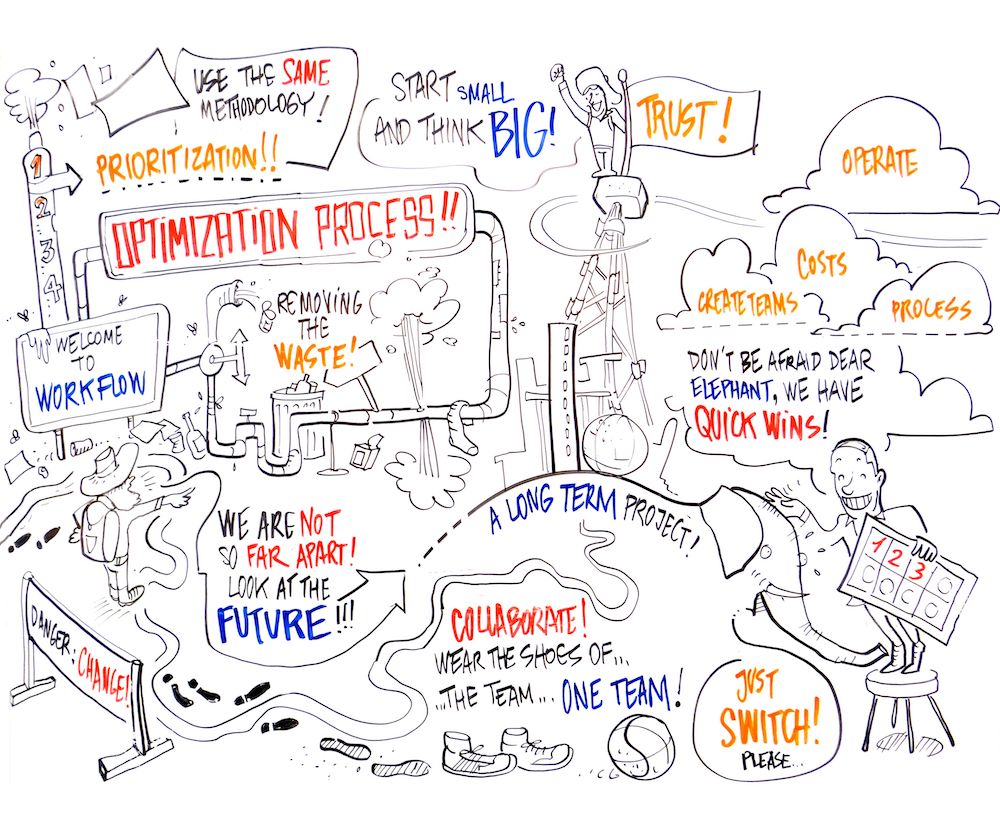 USE THE SAME
METHODOLOGY!
PRIORITIZATION!!
1
2
3
4
START SMALL
AND THINK BIG!
TRUST!
OPERATE
COSTS
CREATE TEAMS
PROCESS
OPTIMIZATION PROCESS!!
REMOVING
THE
WASTE!
WELCOME
TO
WORKFLOW
DON'T BE AFRAID DEAR
ELEPHANT, WE HAVE
QUICK WINS!
A LONG TERM PROJECT!
WE ARE NOT
SO FAR APART!
LOOK AT THE
FUTURE!!!
1 2 3
DANGER: CHANGE!
COLLABORATE!
WEAR THE SHOES OF...
...THE TEAM... ONE TEAM!
JUST
SWITCH!
PLEASE...